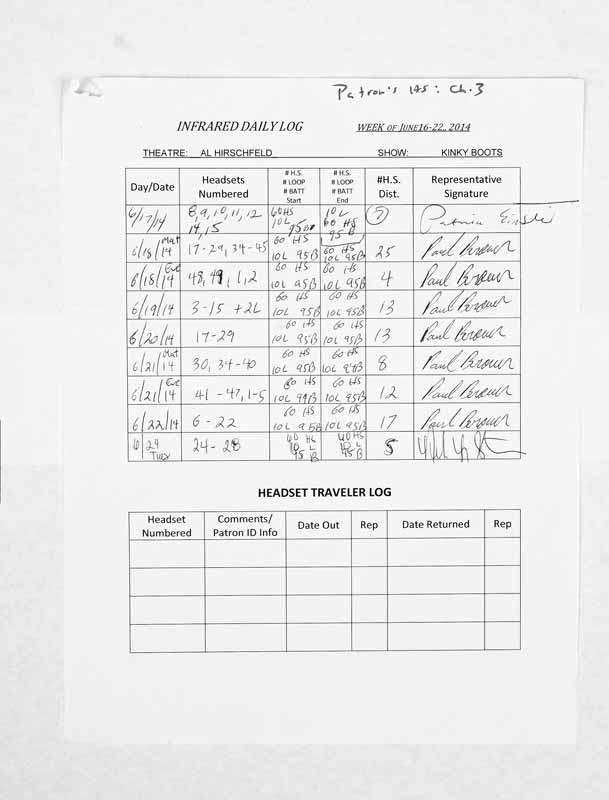 Patron's HS: Ch.3
INFRARED DAILY LOG WEEK OF JUNE16-22, 2014
THEATRE: AL HIRSCHFELD SHOW: KINKY BOOTS
Day/Date Headsets Numbered # H.S. # LOOP # BATT Start # H.S. # LOOP # BATT End #H.S. Dist. Representative Signature
6/17/14 8,9,10,11,12 14,15 60 HS 10L 95B 10L 60 HS 95B 7 Patricia
6/18/14 Mat 17-29, 34-45 60 HS 10L 95B 60 HS 10L 95B 25 Paul Brower
6/18/14 Eve 48, 49, 1, 2 60 HS 10L 95B 60 HS 10L 95B 4 Paul Brower
6/19/14 3-15 +2L 60 HS 10L 95B 60 HS 10L 95B 13 Paul Brower
6/20/14 17-29 60 HS 10L 95B 60 HS 10L 95B 13 Paul Brower
6/21/14 Mat 30, 34-40 60 HS 10L 95B 60 HS 10L 8 Paul Brower
6/21/14 Eve 41-47, 1-5 60 HS 10L 60 HS 10L 95B 12 Paul Brower
6/22/14 6-22 60 HS 10L 95B 60 HS 10L 95B 17 Paul Brower
6/29 Tues 24-28 60 HS 10 L 95 B 60 HS 10 L 95B 5
HEADSET TRAVELER LOG
Headset Numbered Comments/ Patron ID Info Date Out Rep Date Returned Rep